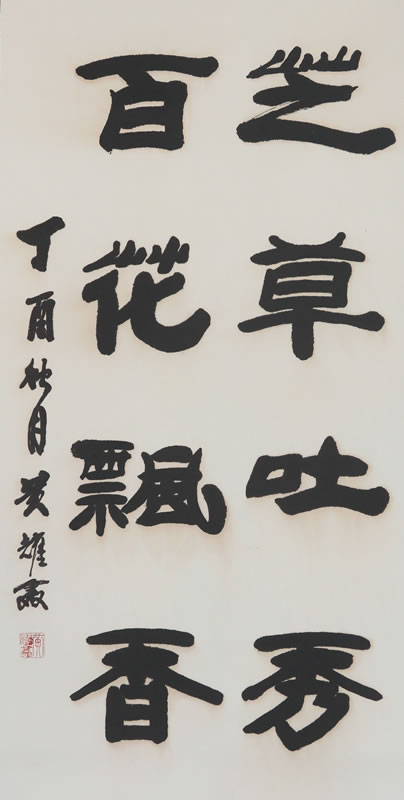 芝草吐秀
百花飄香
丁酉秋月黄耀